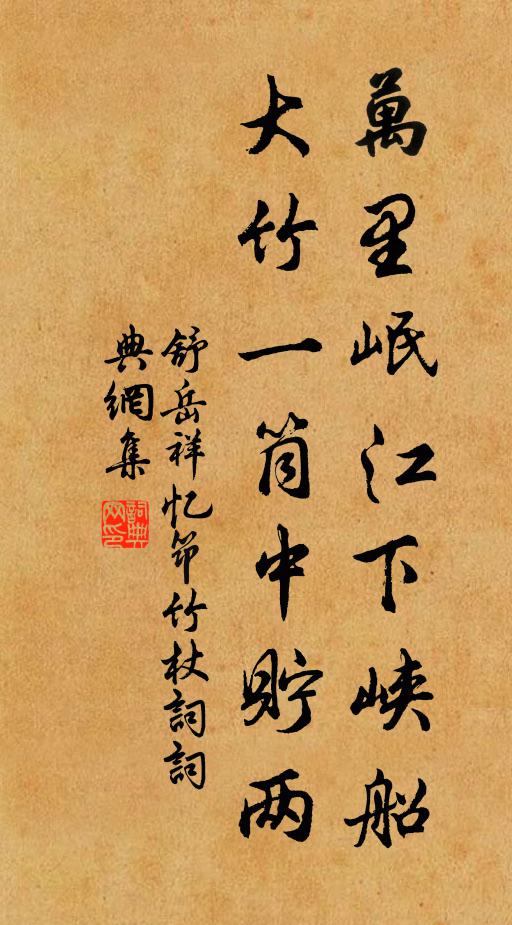 萬里岷江下峡船
大竹一筒中貯两
舒岳祥忆笻竹杖詞詞
典網集
詞典网印